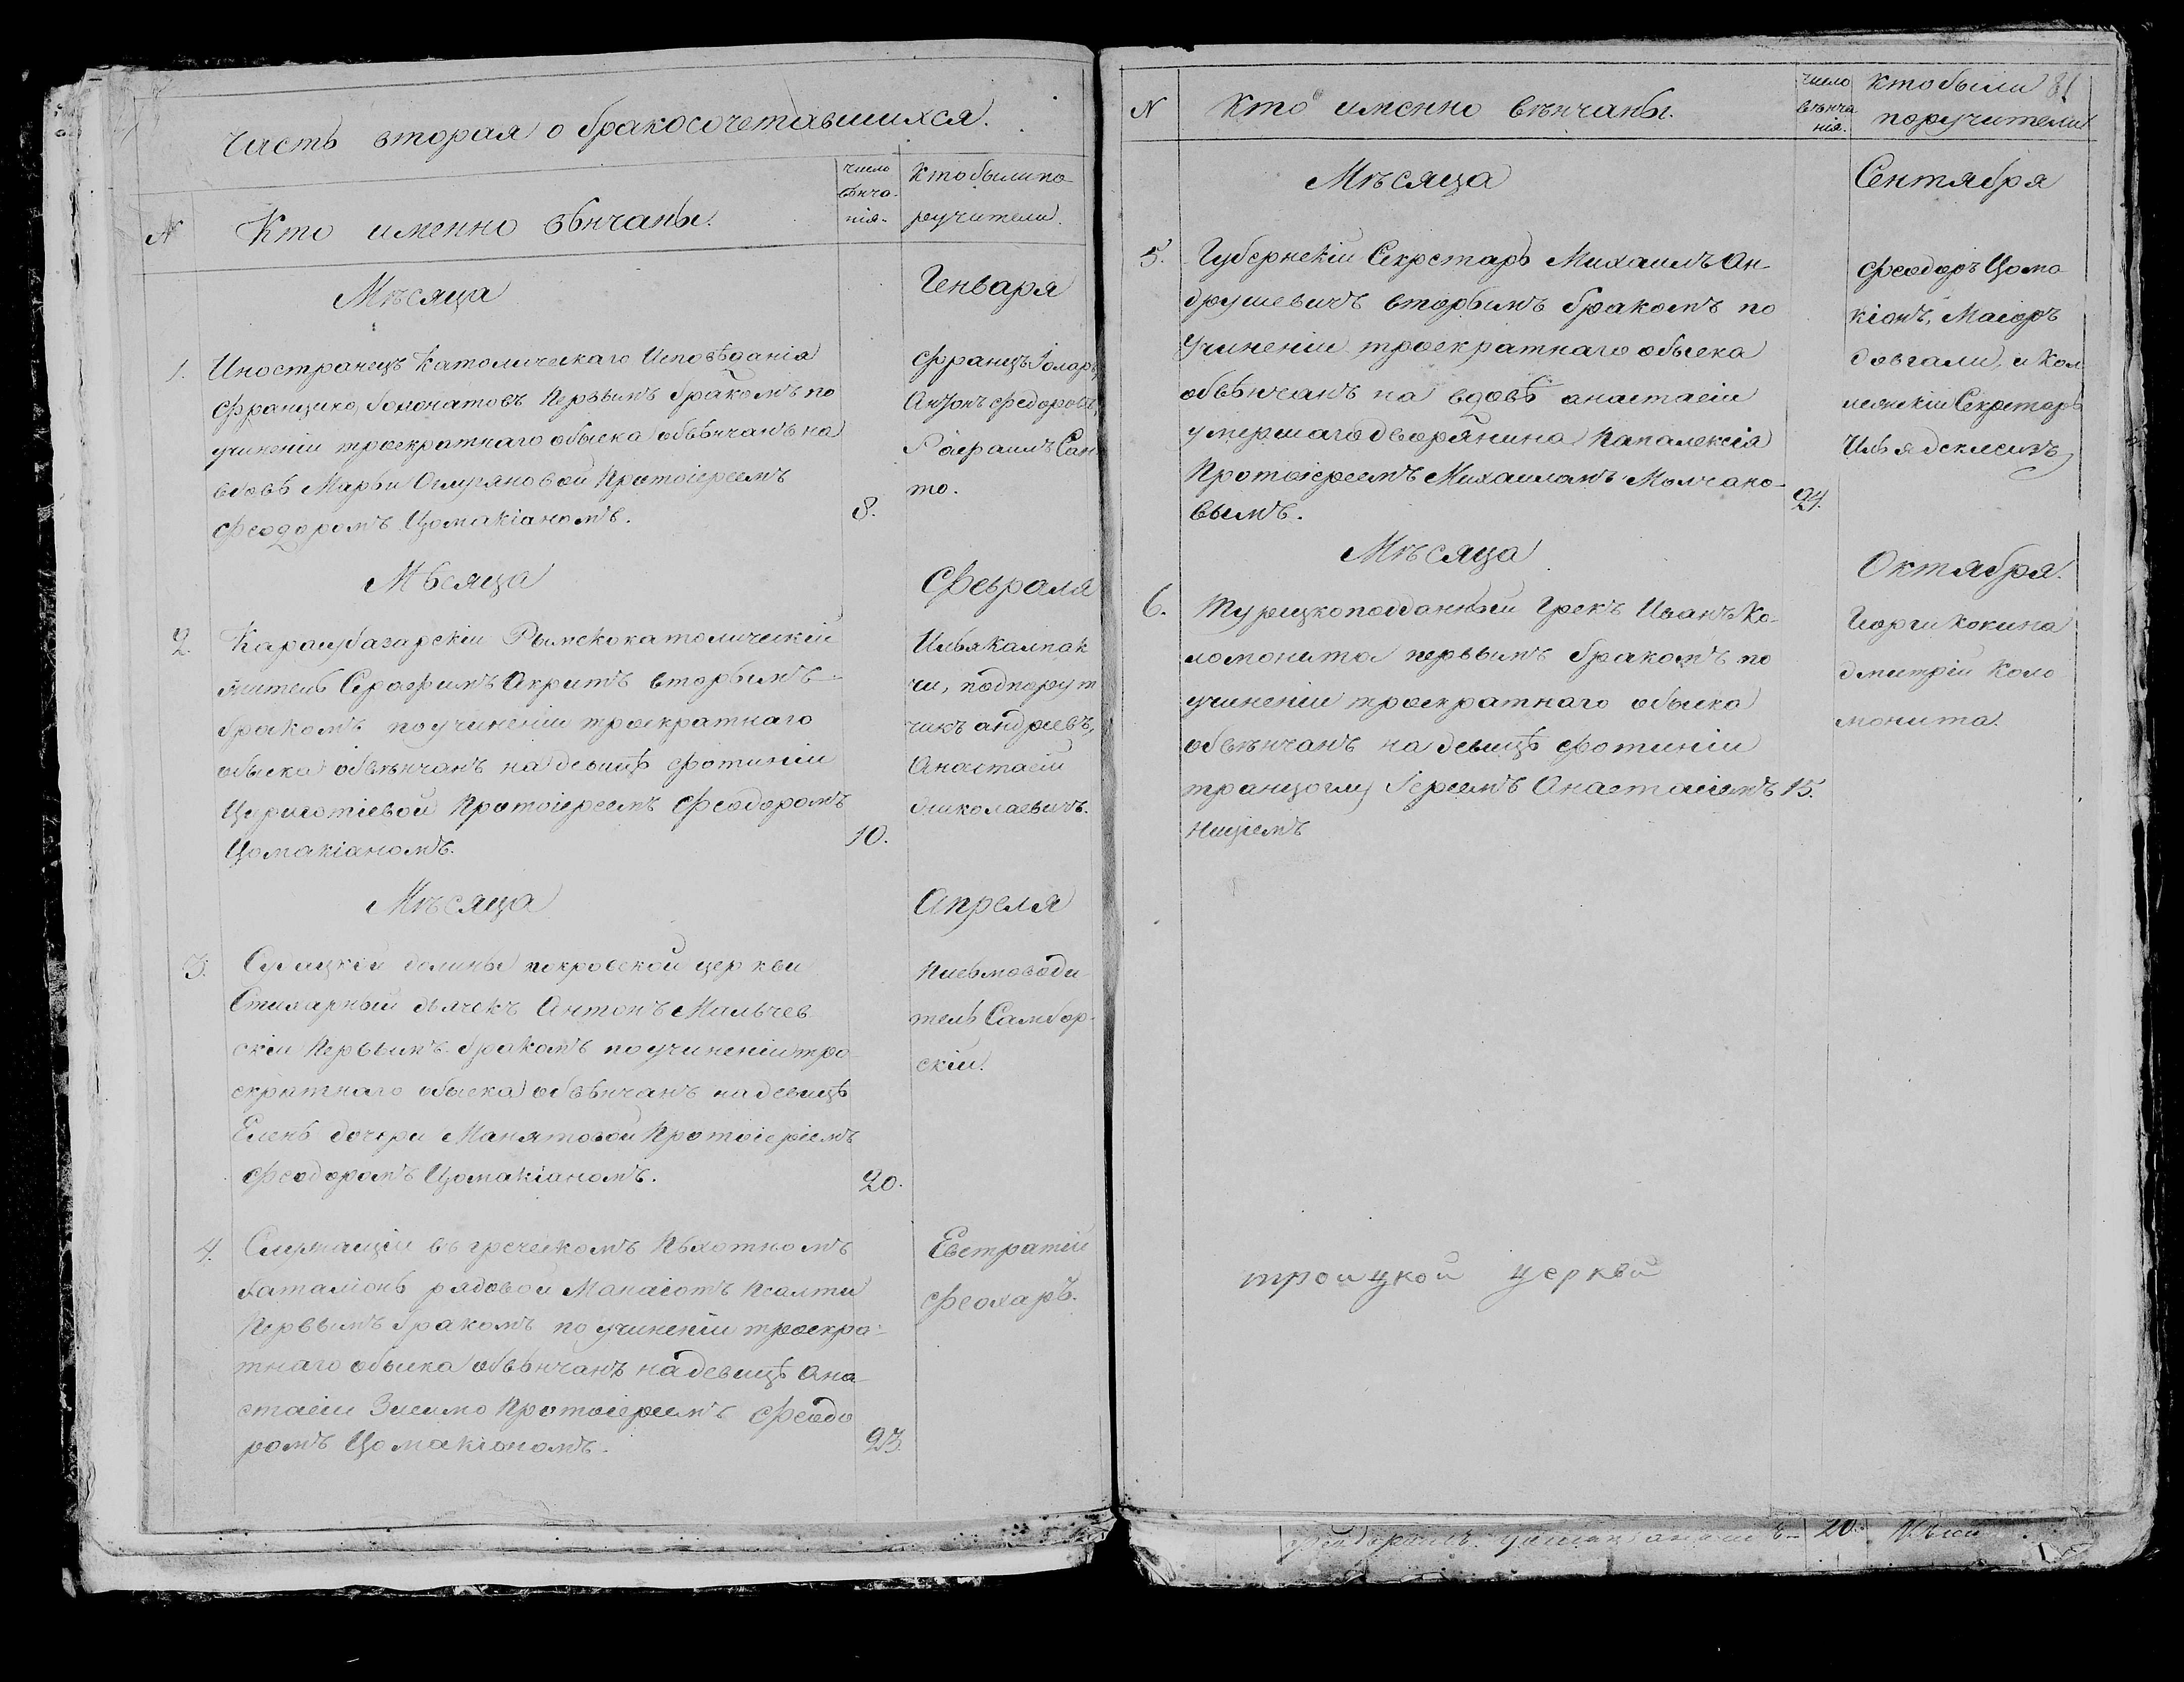 Часть вторая о бракосочетавшихся.
N
Кто именно вѣнчаны.
число вѣнча-нія.
Кто были по-
ручители.
Мѣсяца
Генваря
1.
Иностранецъ Католическаго Исповѣданія
Франциско, первымъ бракомъ по
учиненіи троекратнаго обыска обвѣнчанъ на
вдовѣ Марьи Протоіереемъ
Феодоромъ Цомакіаномъ.
8.
Францъ
Антонъ Федоровъ,
Рафаилъ Сан
то.
Мѣсяца
Февраля
2.
Карасубазарскій Рымскокатолическій
житель Серафимъ Акритъ вторымъ
бракомъ по учиненіи троекратнаго
обыска обвѣнчанъ на девицѣ Фотиніи
Цириготіевой Протоіереемъ Феодоромъ
Цомакіаномъ.
10.
Илья Калпак
чи, подпорут
чикъ андреевъ,
Анастасій
Николаевичъ.
Мѣсяца
Апреля
3.
долины покровской церкви
Стихарный дьячекъ Антонъ Мильчев
скій Первымъ бракомъ по учиненіи тро
екратнаго обыска обвѣнчанъ на девицѣ
Еленѣ дочери Протоіереемъ
Феодоромъ Цомакіаномъ.
20.
Письмоводи
тель Самбор-
скій.
4.
Служащій въ греческомъ Пѣхотномъ
баталіонѣ рядовой Манаіотъ Псалти
Первымъ бракомъ по учиненіи троекра-
тнаго обыска обвѣнчанъ на девицѣ Ана
стасіи Протоіереемъ Феодо
ромъ Цомакіономъ.
23.
Евстратій
Феохаръ.
N
Кто именно вѣнчаны.
число
вѣнча
нія.
Кто были
поручители
81
Мѣсяца
Сентября
5.
Губернскій Секретарь Михаилъ Ан-
друшевичъ вторымъ бракомъ по
Учиненіи троекратнаго обыска
обвѣнчанъ на вдовѣ анастасіи
умершаго дворянина Папалексія
Протоіереемъ Михаиломъ Молчано-
вымъ.
24.
Феодоръ Цома
кіонъ, Маіоръ
Довгали, и Кол
лежскій Секретарь
Илья
Мѣсяца
Октября.
6.
Турецкоподданный Грекъ Иванъ Ко-
ломонита первымъ бракомъ по
учиненіи троекратнаго обыска
обвѣнчанъ на девицѣ Фотиніи
Іереемъ Анастасіемъ
15.
Ниціемъ
Георги Кокина
дмитрій Коло
монита.
троицкой церкви
Феодоромъ
20.